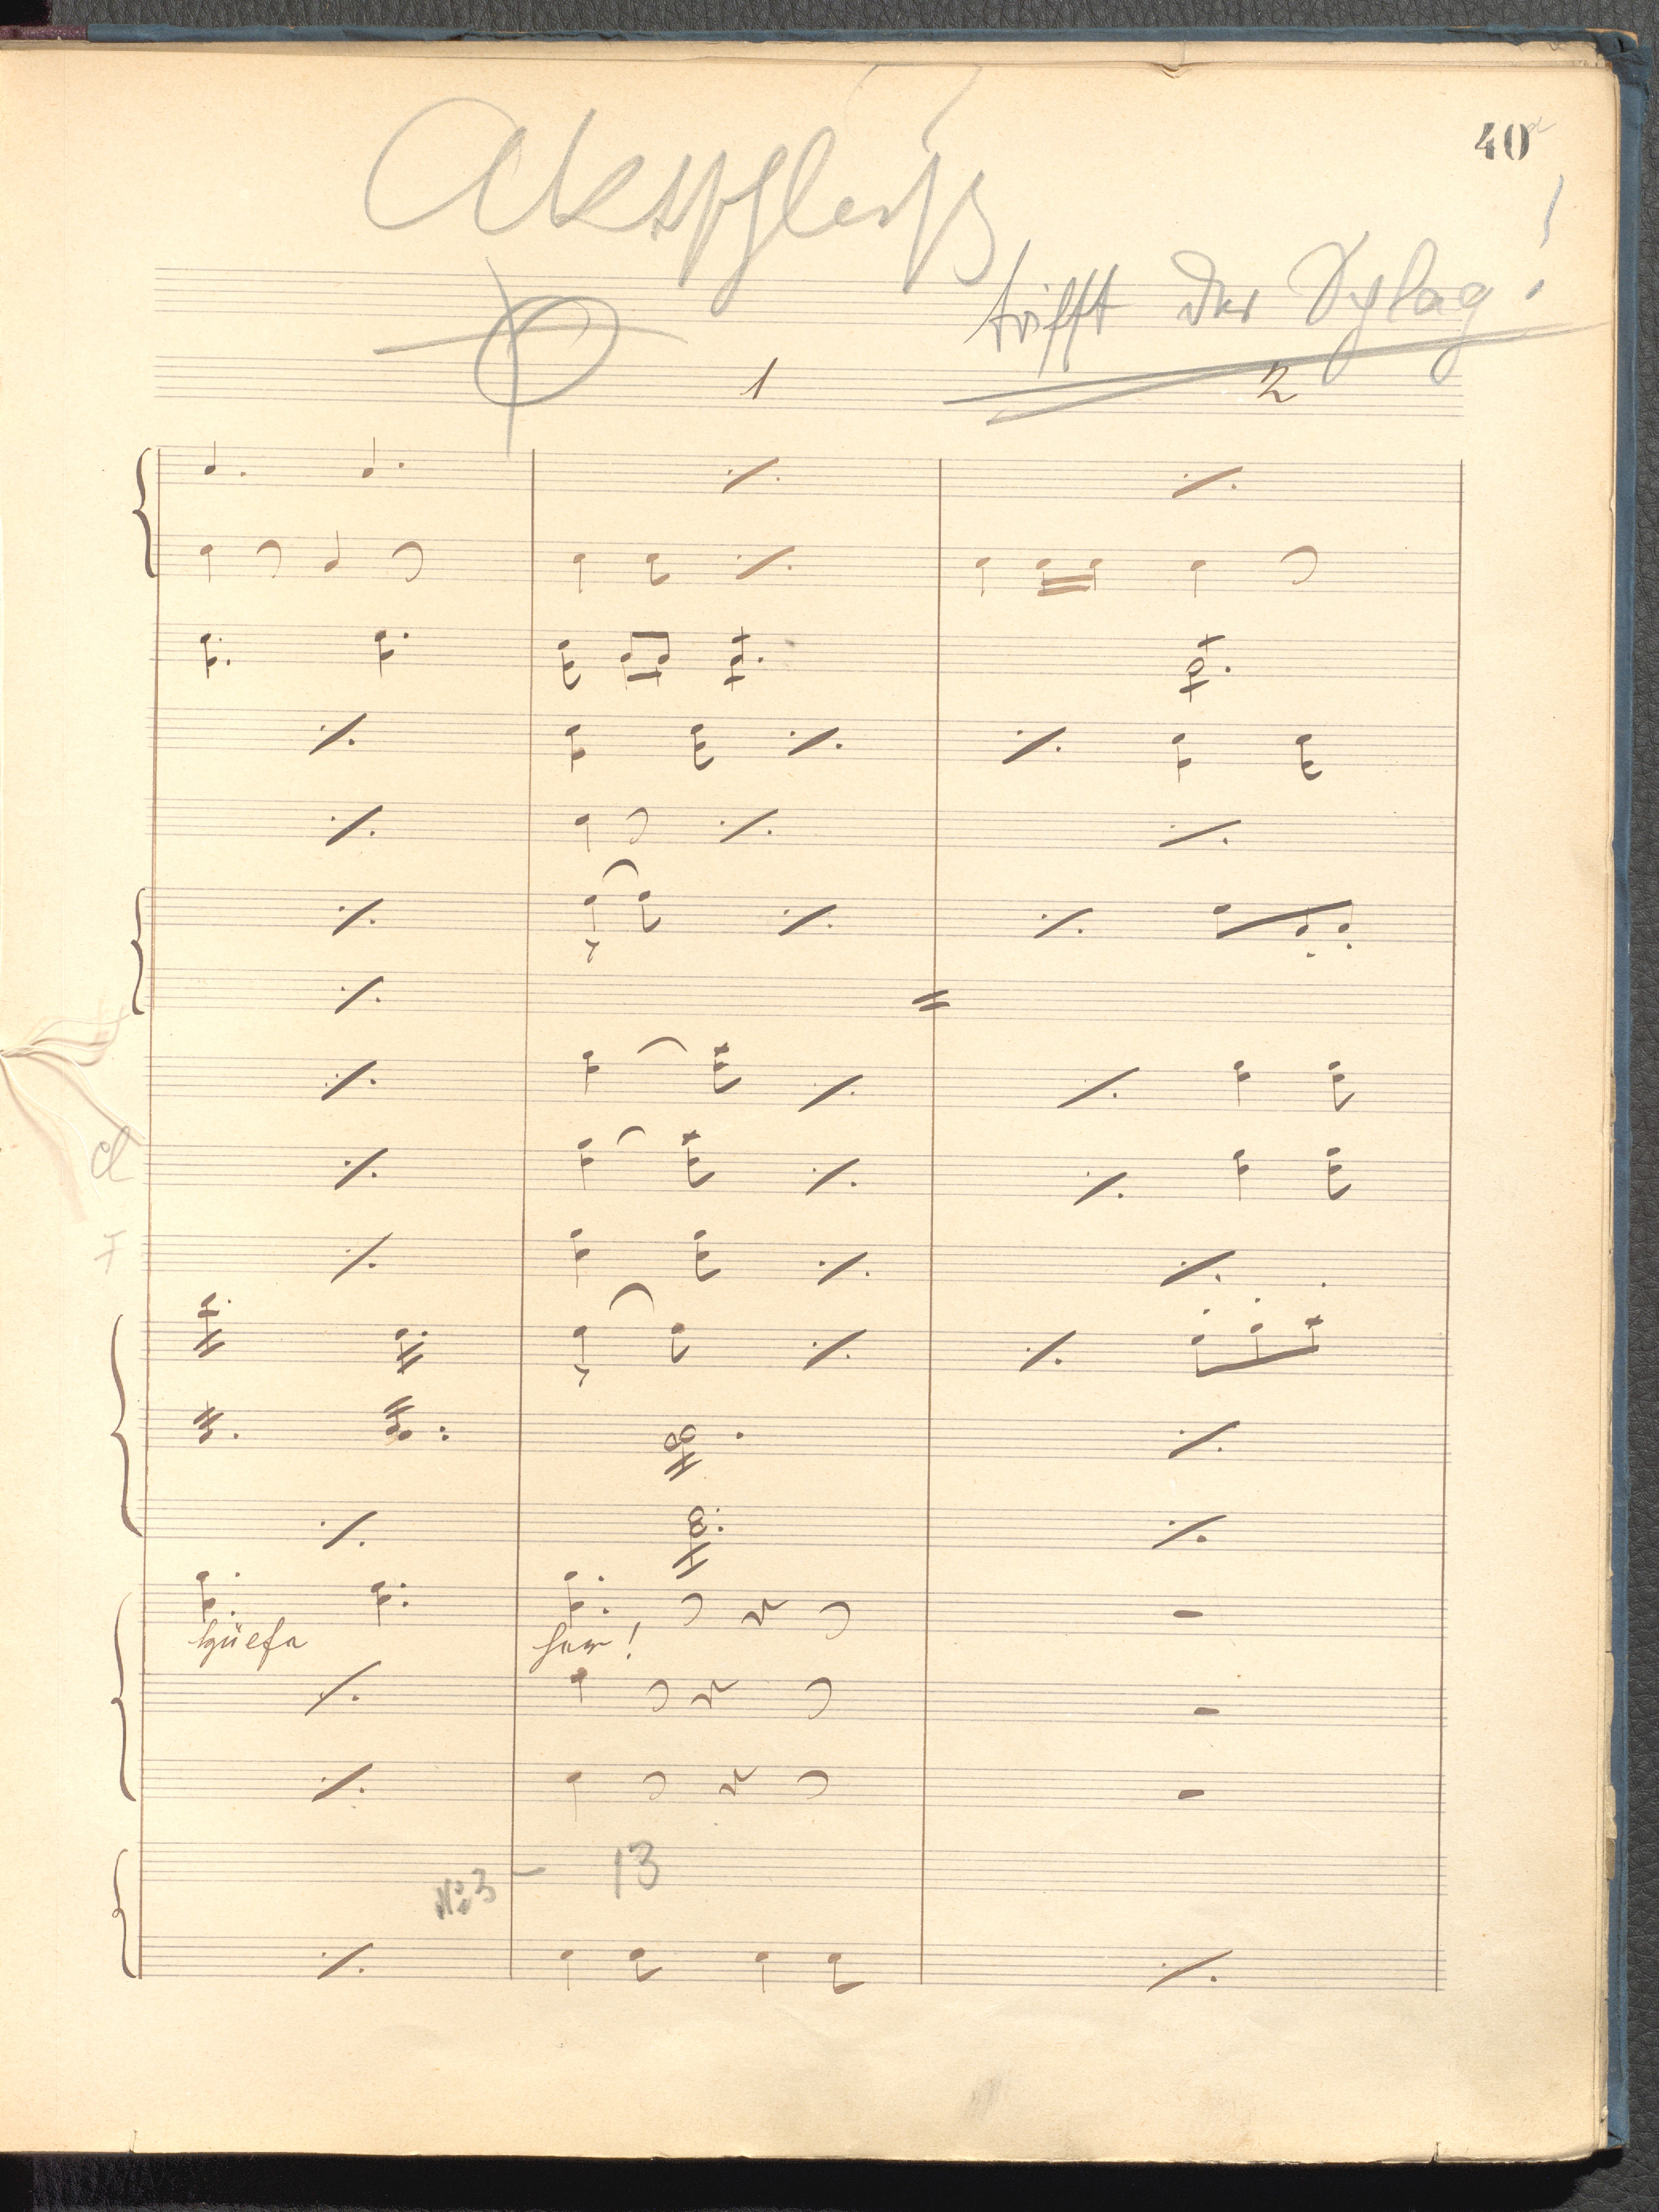 40
Aktschluß
trifft der Schlag!
1 2
cl
F
hüefa
han!
No 3 – 13